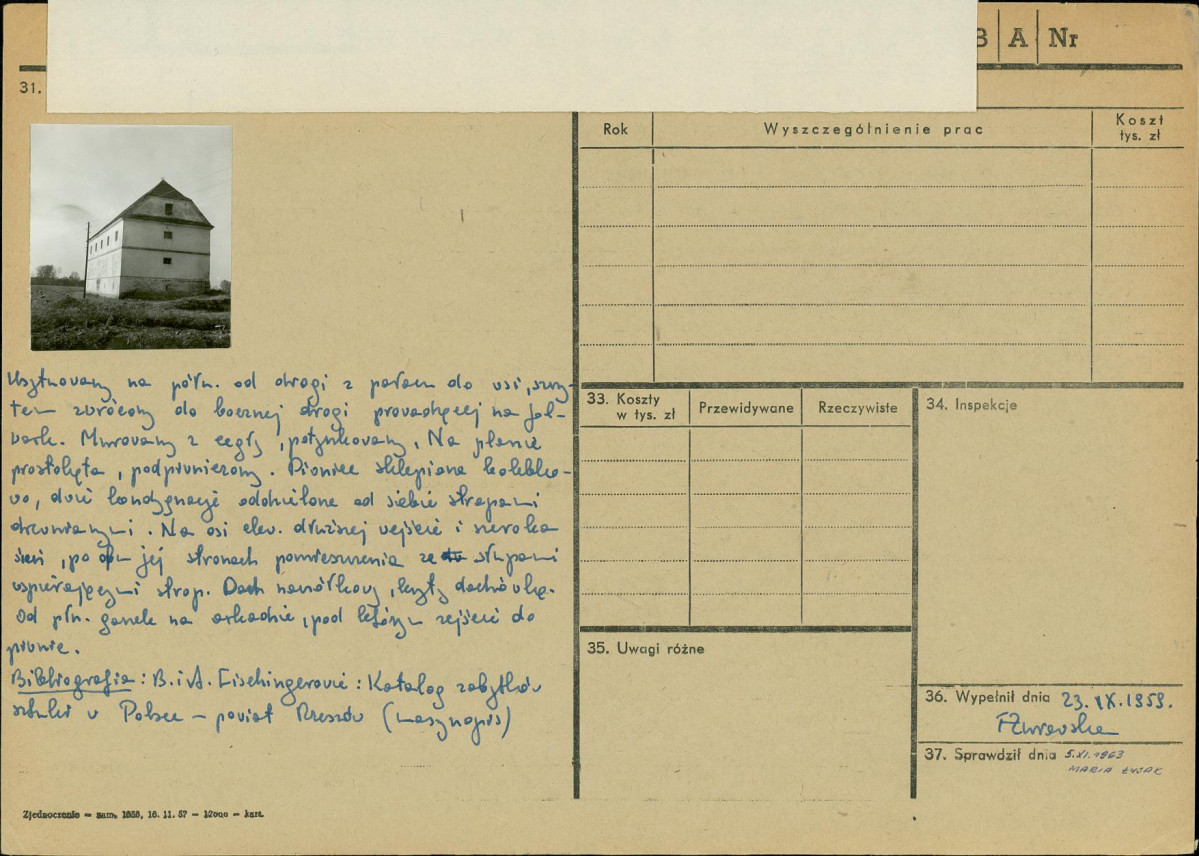 B A Nr
31.
Rok Wyszczególnienie prac Koszt tys. zł
Usytuowany na półn. od drogi z parku do wsi, szczy-
tem zwrócony do bocznej drogi prowadzącej na fol-
wark. Murowany z cegły, potynkowany. Na planie
prostokąta, podpiwniczony. Piwnice sklepione kolebko-
wo, dwie kondygnacje oddzielone od siebie stropami
drewnianymi. Na osi elew. dłuższej wejście i szeroka
sień, po obu jej stronach pomieszczenia ze słupami
wspierającymi strop. Dach naczółkowy, kryty dachówką.
Od płn. ganek na arkadzie, pod którym zejście do
piwnic.
Bibliografia: B. i A. Fischingerowie: Katalog zabytków
sztuki w Polsce – powiat Rzeszów (maszynopis)
33. Koszty w tys. zł Przewidywane Rzeczywiste
34. Inspekcje
35. Uwagi różne
36. Wypełnił dnia 23.IX.1959.
37. Sprawdził dnia 5.XI.1963
MARIA ŁYSAK
Zjednoczenie — zam. 1858, 16. 11. 57 — 12000 — kart.